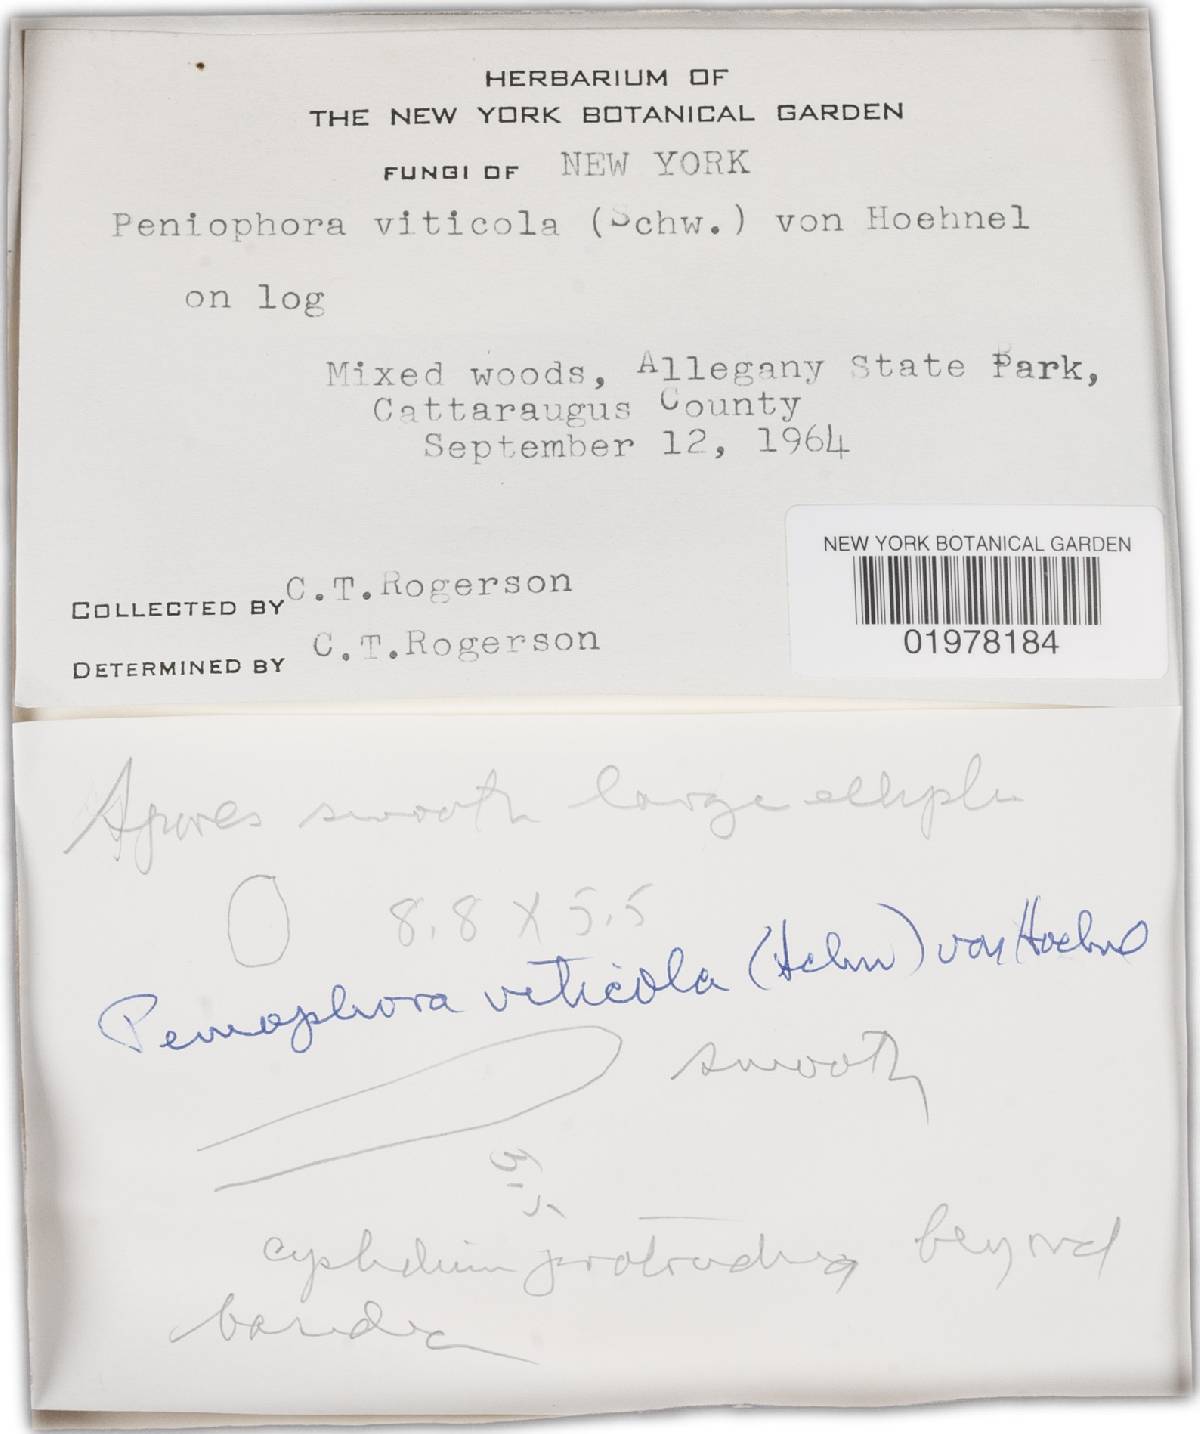 HERBARIUM OF
THE NEW YORK BOTANICAL GARDEN
FUNGI OF NEW YORK
Peniophora viticola (Schw.) von Hoehnel
on log
Mixed woods, Allegany State Park,
Cattaraugus County
September 12, 1964
NEW YORK BOTANICAL GARDEN
01978184
COLLECTED BY C.T.Rogerson
DETERMINED BY C.T.Rogerson
Spores smooth large
8.8 X 5.5
Peniophora viticola von Hoehnel
smooth
protruding beyond